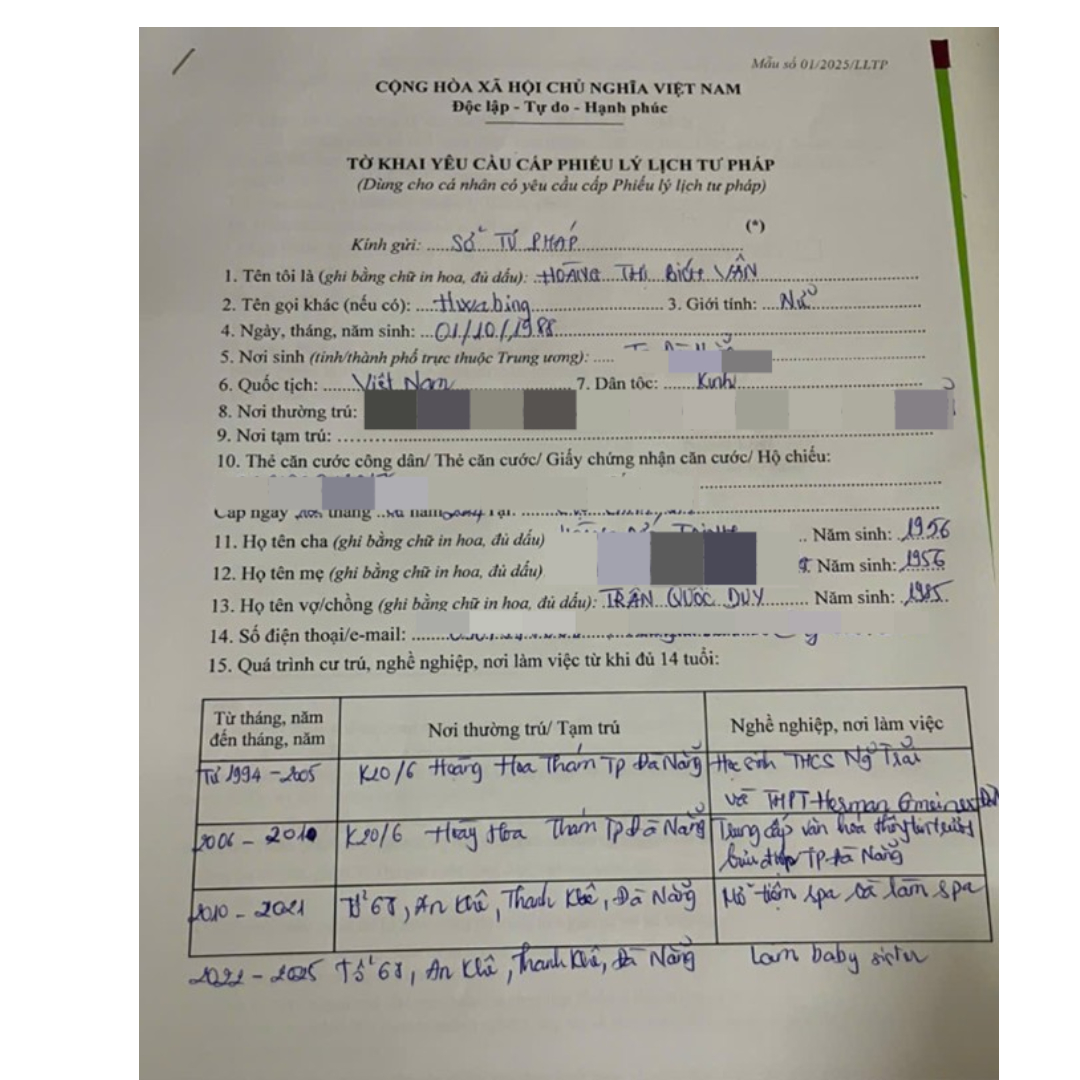 Mẫu số 01/2025/LLTP
CỘNG HÒA XÃ HỘI CHỦ NGHĨA VIỆT NAM
Độc lập - Tự do - Hạnh phúc
TỜ KHAI YÊU CẦU CẤP PHIẾU LÝ LỊCH TƯ PHÁP
(Dùng cho cá nhân có yêu cầu cấp Phiếu lý lịch tư pháp)
(*)
Kính gửi: SỞ TƯ PHÁP
1. Tên tôi là (ghi bằng chữ in hoa, đủ dấu): HOÀNG THỊ BÍCH VÂN
2. Tên gọi khác (nếu có): Hwabing 3. Giới tính: Nữ
4. Ngày, tháng, năm sinh: 01/10/1988
5. Nơi sinh (tỉnh/thành phố trực thuộc Trung ương):
6. Quốc tịch: Việt Nam 7. Dân tộc: Kinh
8. Nơi thường trú:
9. Nơi tạm trú:
10. Thẻ căn cước công dân/ Thẻ căn cước/ Giấy chứng nhận căn cước/ Hộ chiếu:
Cấp ngày tháng năm Tại:
11. Họ tên cha (ghi bằng chữ in hoa, đủ dấu) Năm sinh: 1956
12. Họ tên mẹ (ghi bằng chữ in hoa, đủ dấu) Năm sinh: 1956
13. Họ tên vợ/chồng (ghi bằng chữ in hoa, đủ dấu): TRẦN QUỐC DUY Năm sinh: 1985
14. Số điện thoại/e-mail:
15. Quá trình cư trú, nghề nghiệp, nơi làm việc từ khi đủ 14 tuổi:
Từ tháng, năm
đến tháng, năm
Nơi thường trú/ Tạm trú
Nghề nghiệp, nơi làm việc
Từ 1994 - 2005 K20/6 Hoàng Hoa Thám TP Đà Nẵng Học sinh THCS Ng Trãi
và THPT Herman Gmeiner ĐN
2006 - 2010 K20/6 Hoàng Hoa Thám TP Đà Nẵng Trung cấp văn hóa
TP Đà Nẵng
2010 - 2021 Tổ 68, An Khê, Thanh Khê, Đà Nẵng Mở tiệm spa và làm spa
2022 - 2025 Tổ 68, An Khê, Thanh Khê, Đà Nẵng Làm baby sister